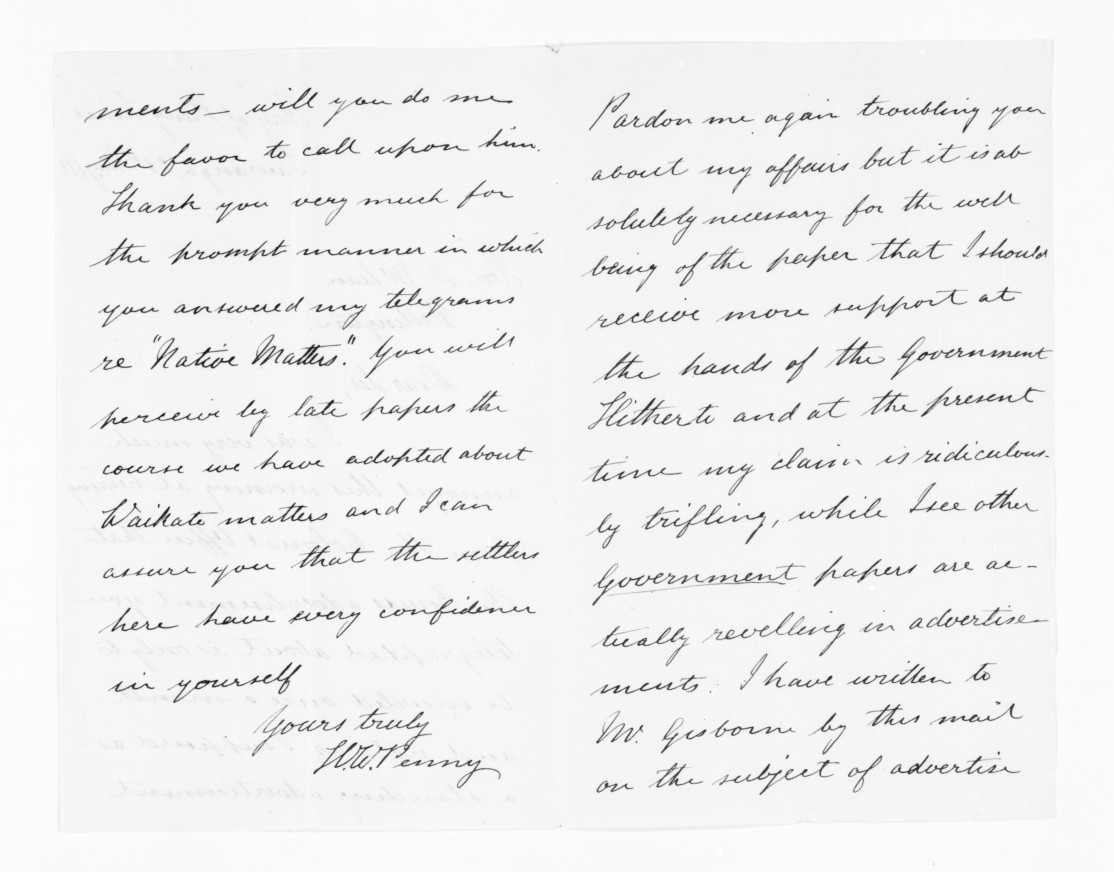 Pardon me again troubling you
about my affairs but it is ab
solutely necessary for the well
being of the paper that I should
receive more support at
the hands of the Government
Hitherto and at the present
time my claim is ridiculous-
ly trifling, while I see other
Government papers are ac-
tually revelling in advertise-
ments. I have written to
Mr. Gisborne by this mail
on the subject of advertise
ments – will you do me
the favor to call upon him.
Thank you very much for
the prompt manner in which
you answered my telegrams
re "Native Matters". You will
perceive by late papers the
course we have adopted about
Waikato matters and I can
assure you that the settlers
here have every confidence
in yourself
Yours truly
H.W. Penny